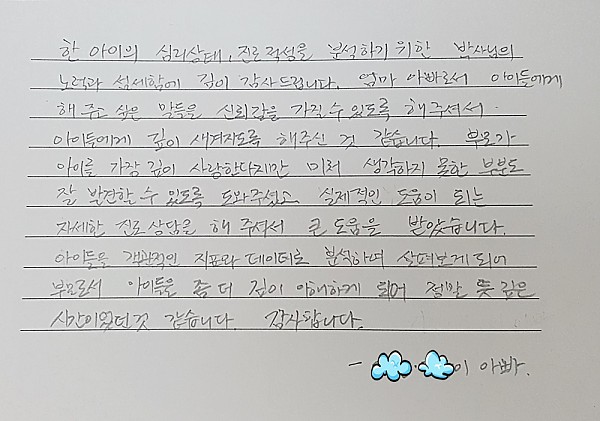 한 아이의 심리상태, 진로적성을 분석하기 위한 박사님의
노력과 섬세함에 깊이 감사드립니다. 엄마 아빠로서 아이들에게
해 주고 싶은 말들을 신뢰감을 가질 수 있도록 해주셔서
아이들에게 깊이 새겨지도록 해주신 것 같습니다. 부모가
아이를 가장 깊이 사랑한다지만 미처 생각하지 못한 부분도
잘 발견할 수 있도록 도와주셨고 실제적인 도움이 되는
자세한 진로상담을 해 주셔서 큰 도움을 받았습니다.
아이들을 객관적인 지표와 데이터로 분석하며 살펴보게 되어
부모로서 아이들을 좀 더 깊이 이해하게 되어 정말 뜻 깊은
시간이었던 것 같습니다. 감사합니다.
- · 이 아빠.